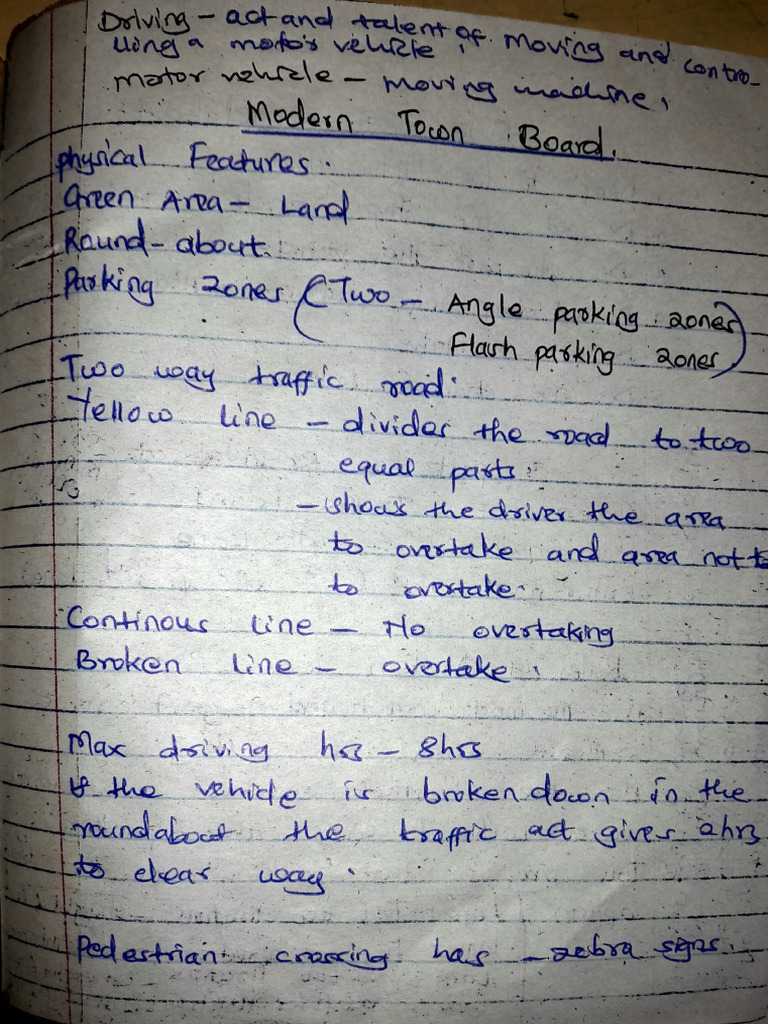 Driving - act and talent of moving and contro-
lling a motor vehicle.
motor vehicle - moving machine.
Modern Town Board.
physical Features.
Green Area - Land
Round-about.
Parking zones (Two - Angle parking zones
Flash parking zones)
Two way traffic road.
Yellow line - divides the road to two
equal parts.
- shows the driver the area
to overtake and area not to
to overtake.
Continous line - No overtaking
Broken line - overtake.
Max driving hrs - 8hrs
If the vehicle is broken down in the
roundabout the traffic act gives 2hrs
to clear way.
Pedestrian crossing has - zebra signs.